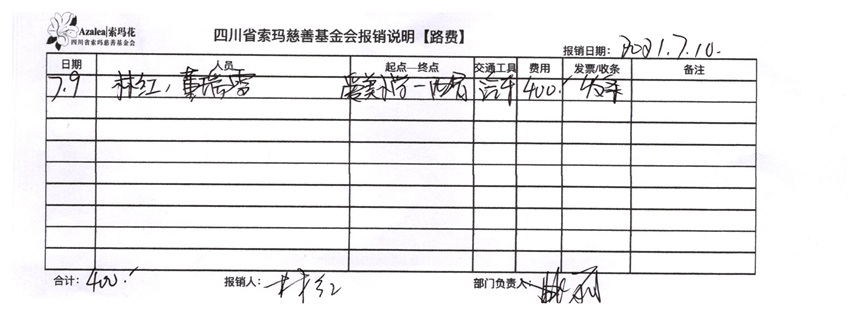 Azalea|索玛花
四川省索玛慈善基金会
四川省索玛慈善基金会报销说明【路费】
报销日期: 2021.7.10.
日期 人员 起点—终点 交通工具 费用 发票/收条 备注
7.9 林红, 董瑞雪 汽车 400. 发票
合计: 400. 报销人: 林红 部门负责人: